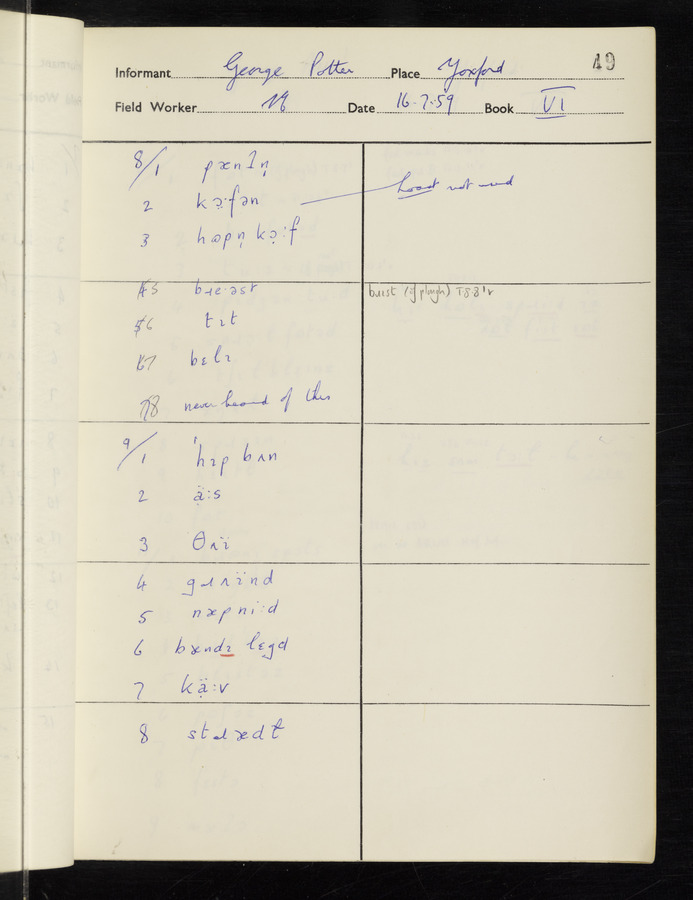 49
Informant George Potter Place Yoxford
Field Worker Date 16.7.59 Book VI
8/1 pænIn̩
2 kə̣:fən hoast not used
3 hapn̩ kə̣:f
5 bɹɛ·əst burst (of plough)
6 tɪt
7 bɛlɪ
8 never heard of this
9/1 'hɪp bʌn
2 ä:s
3 θʌï
4 gɹʌïnd
5 næpni:d
6 bændɪ lɛgd
7 kä:v
8 stɹædɫ